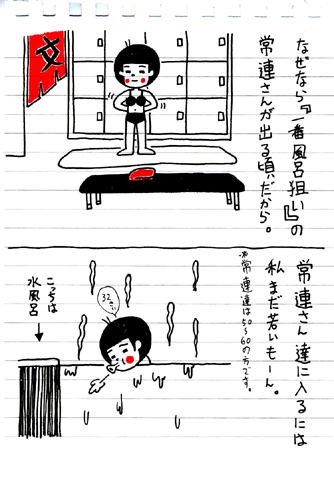 なぜなら『一番風呂狙い』の
常連さんが出る頃だから。
女
常連さん達に入るには
私まだ若いもーん。
※常連達は50〜60の方です。
32さい
こっちは
水風呂